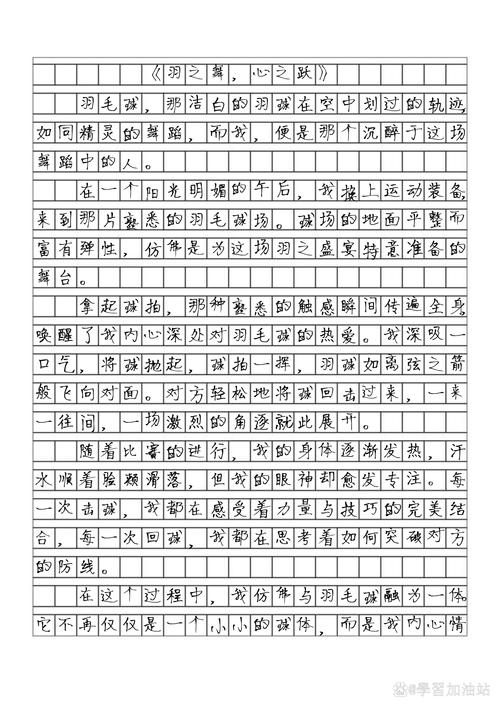 《羽之舞，心之跃》
羽毛球，那洁白的羽球在空中划过的轨迹，
如同精灵的舞蹈，而我，便是那个沉醉于这场
舞蹈中的人。
在一个阳光明媚的午后，我换上运动装备，
来到那片熟悉的羽毛球场。球场的地面平整而
富有弹性，仿佛是为这场羽之盛宴特意准备的
舞台。
拿起球拍，那种熟悉的触感瞬间传遍全身，
唤醒了我内心深处对羽毛球的热爱。我深吸一
口气，将球抛起，球拍一挥，羽球如离弦之箭
般飞向对面。对方轻松地将球回击过来，一来
一往间，一场激烈的角逐就此展开。
随着比赛的进行，我的身体逐渐发热，汗
水顺着脸颊滑落，但我的眼神却愈发专注。每
一次击球，我都在感受着力量与技巧的完美结
合，每一次回球，我都在思考着如何突破对方
的防线。
在这个过程中，我仿佛与羽毛球融为一体。
它不再仅仅是一个小小的球体，而是我内心情
@學習加油站